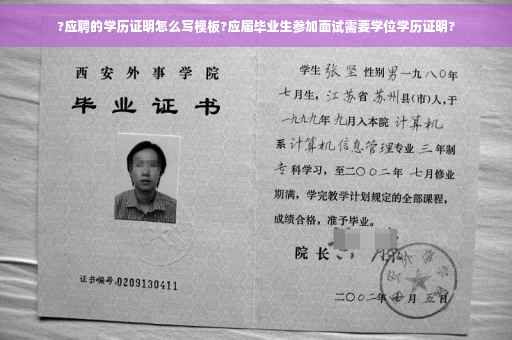 ?应聘的学历证明怎么写模板?应届毕业生参加面试需要学位学历证明?
西安外事学院
毕业证书
证书编号:0209130411
学生 张坚 性别 男 一九八〇年
七月生，江苏省 苏州县(市)人,于
一九九九年 九月入本院 计算机
系 计算机信息管理专业 三 年制
专 科学习，至二〇〇二年 七月修业
期满，学完教学计划规定的全部课程，
成绩合格，准予毕业。
院长
二〇〇二年 月 五日